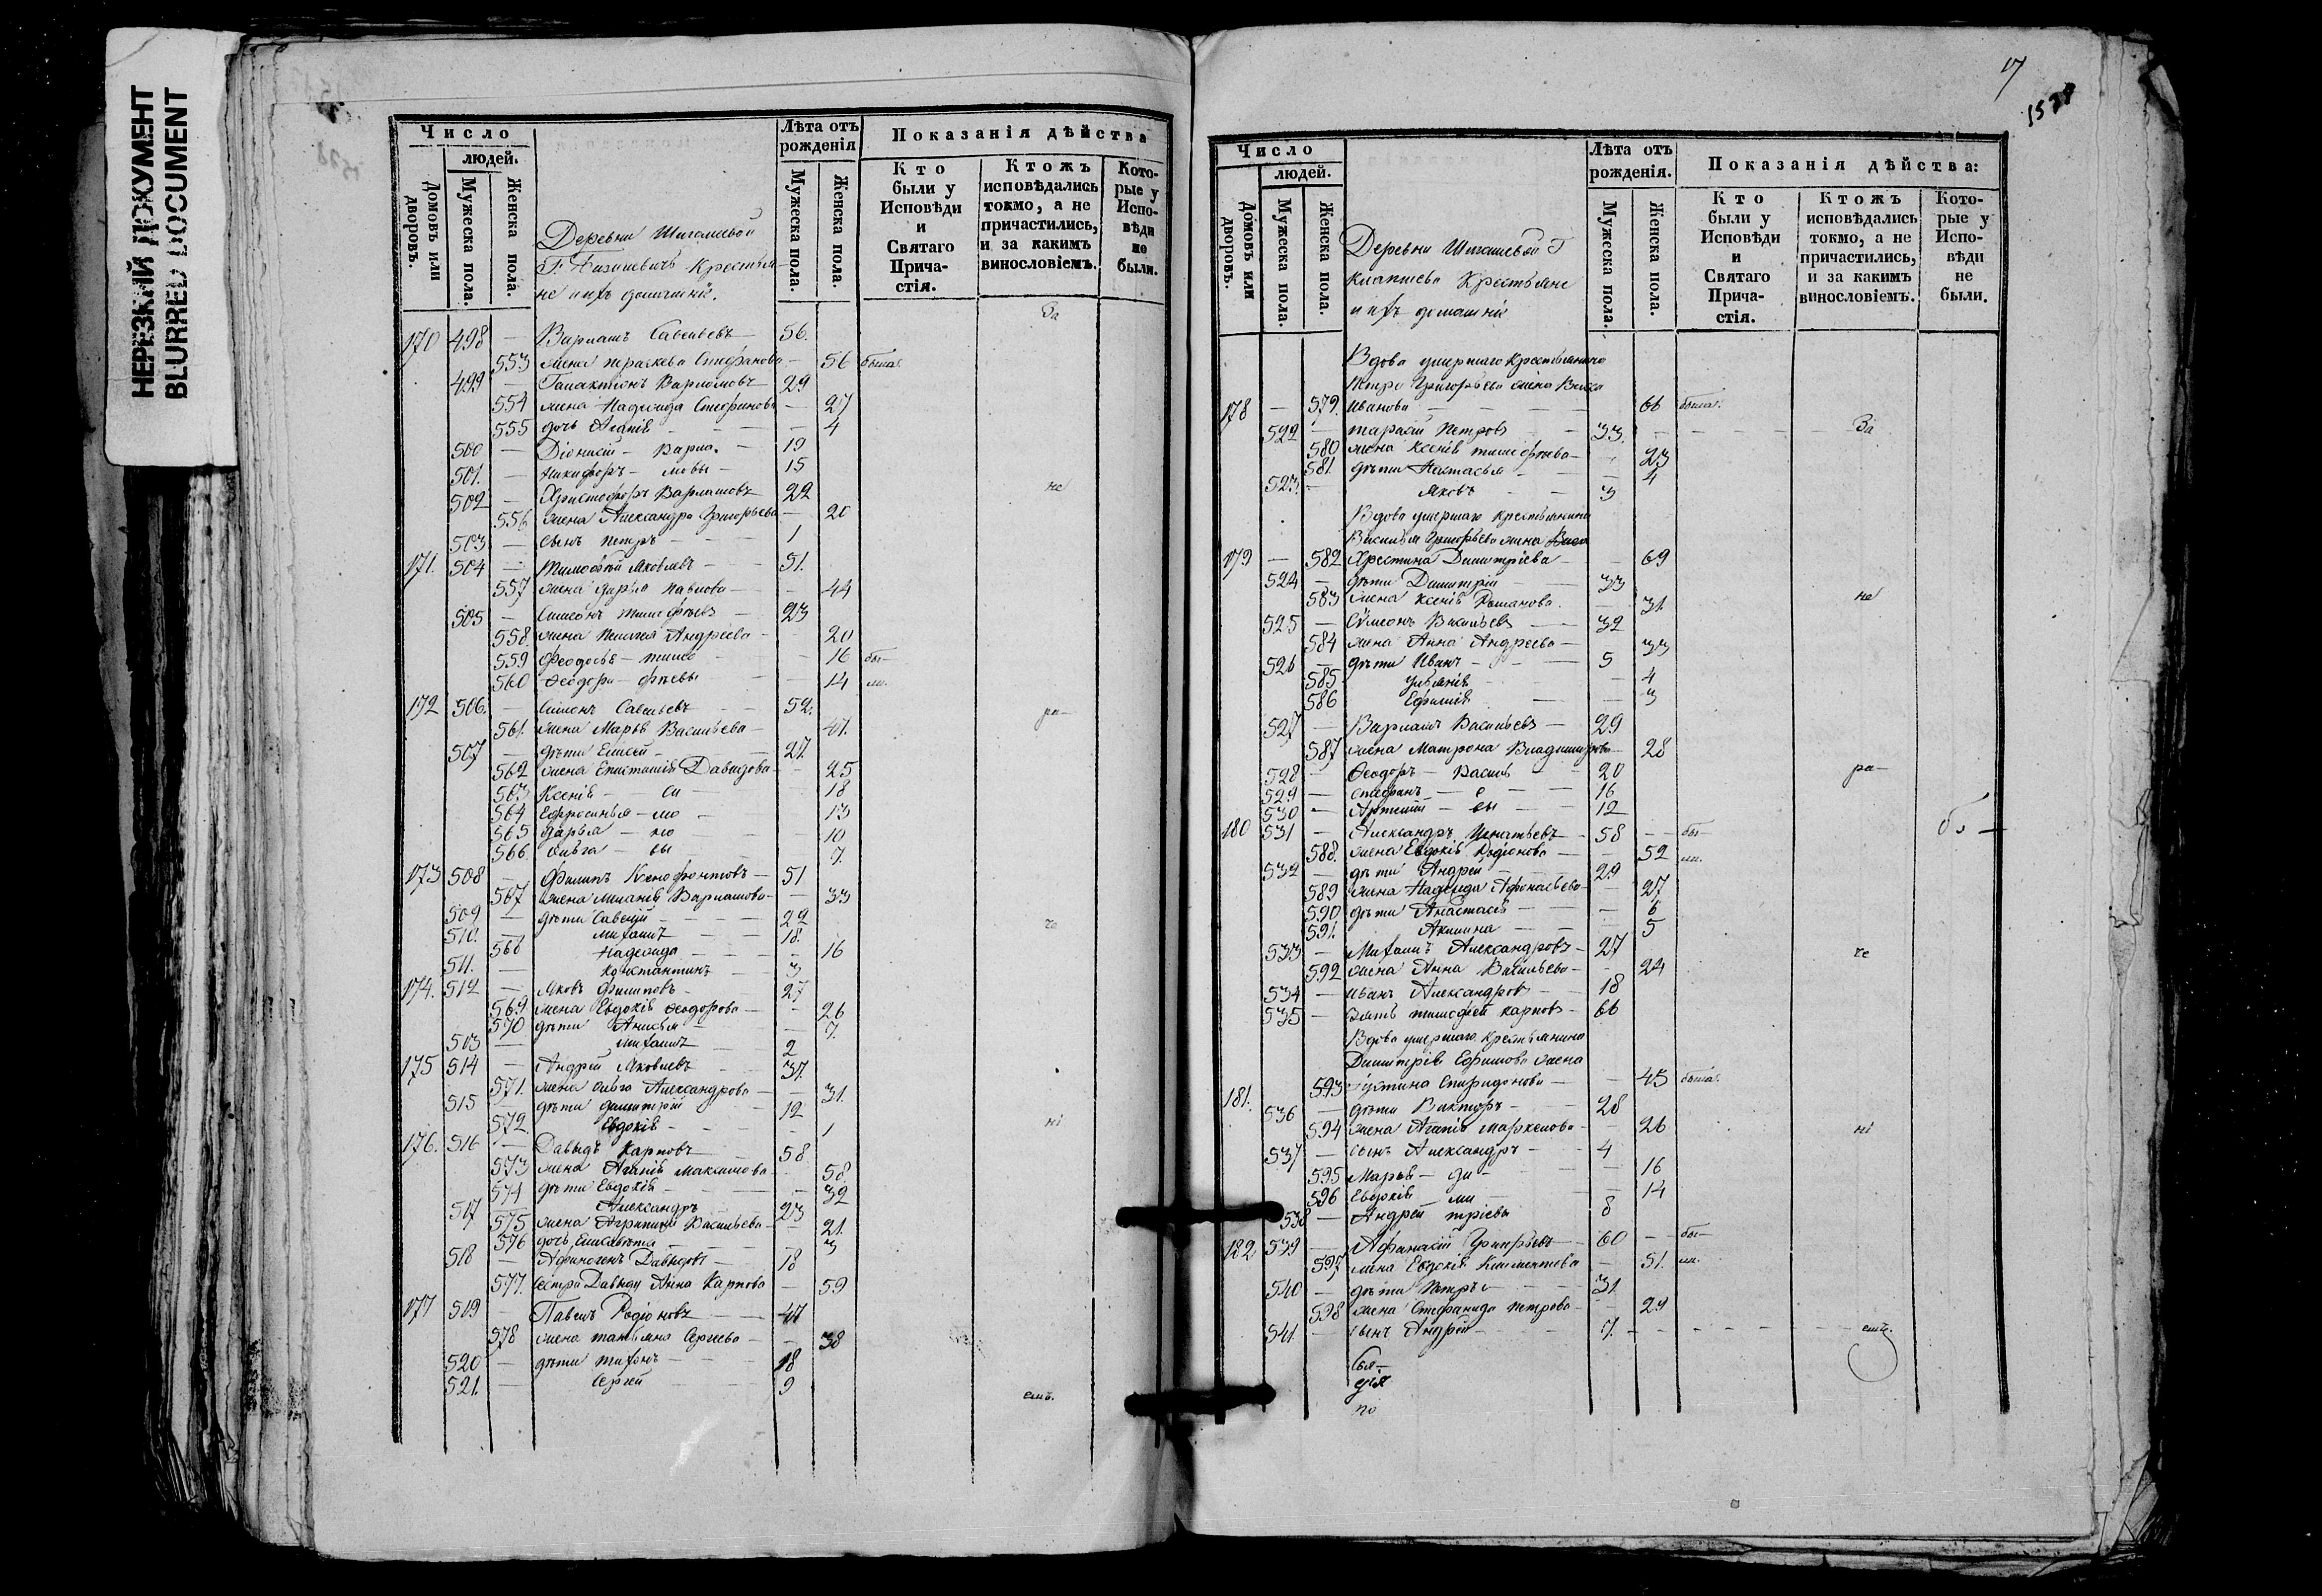 НЕРЕЗКИЙ ДОКУМЕНТ
BLURRED DOCUMENT
Число
людей.
Домовъ или дворовъ.
Мужеска пола.
Женска пола.
Деревни
Крестья
не и ихъ домашніе.
Лѣта отъ рожденія
Мужеска пола.
Женска пола.
Показанія дѣйства
Кто были у Исповѣди и Святаго Причастія.
Ктожъ исповѣдались токмо, а не причастились, и за какимъ винословіемъ.
Которые у Исповѣди не были.
За
170 498 — Варлаамъ Савельевъ 56.
553 жена Параскева Стефанова — 56 была.
499 — Галактіонъ Варламовъ 29
554 жена Надежда Стефанова — 27
555 дочь Агапія — 4
500 — Діонисій — Варла. — 19
501. — Никифоръ — мовы — 15
502 — Христофоръ Варламовъ 22
не
556 жена Александра Григорьева — 20
503 — сынъ Петръ — 1
171. 504 — Тимофей Яковлевъ — 51.
557 жена Дарья Павлова — 44
505 — Симеонъ Тимофеевъ — 23
558. жена Пелагея Андреева — 20
559 Феодосья — Тимо — 16 бы—
560 Феодора — фѣевы — 14 ли.
172 506. — Симонъ Савельевъ — 52.
561. жена Марья Васильева — 41.
ра—
507 — дѣти Елисей — 21.
562 жена Епистимія Давыдова — 25
563 Ксенія — си — 18
564 Ефросинья — мо — 13
565 Дарья — но — 10
566. Ольга — вы — 7.
173 508 — Филипъ Ксенофонтовъ — 51
567 жена Меланія Варламова — 33
509 — дѣти Савелій — 22
510. — Михаилъ — 18.
че
568 Надежда — 16
511. — Константинъ — 3
174. 512 — Яковъ Филиповъ — 27
569 жена Евдокія Феодорова — 26
570 дѣти Анисья — 7.
513 — Михаилъ — 2
175 514 — Андрей Яковлевъ — 37.
571. жена Ольга Александрова — 31.
515 — дѣти Димитрій — 12
572. Евдокія — 1
ні
176. 516 — Давыдъ Карповъ — 58
573 жена Агапія Максимова — 58.
574 дѣти Евдокія — 32
517 — Александръ — 23
575 жена Агрипина Васильева — 21.
576 дочь Елисавета — 3
518 — Афиногенъ Давыдовъ — 18
577. сестра Давыду Анна Карпова — 59
177 519 — Павелъ Родіоновъ — 41
578 жена Татьяна Сергѣева — 38
520 — дѣти Тихонъ — 18
521. — Сергей — 9
емъ.
17
Число
людей.
Домовъ или дворовъ.
Мужеска пола.
Женска пола.
Деревни
Крестьяне
и ихъ домашніе
Лѣта отъ рожденія.
Мужеска пола.
Женска пола.
Показанія дѣйства:
Кто были у Исповѣди и Святаго Причастія.
Ктожъ исповѣдались токмо, а не причастились, и за какимъ винословіемъ.
Которые у Исповѣди не были.
Вдова умершаго крестьянина
Петра Григорьева жена Васса
178 — 579. Иванова — 66 была.
За
522 — Тарасій Петровъ — 33.
580 жена Ксенія Тимофеева — 23
581. дѣти Настасья — 4
523. — Яковъ — 3
Вдова умершаго крестьянина
Василья Григорьева жена
179 — 582 Христина Димитріева — 69
524 — дѣти Димитрій — 33
583 жена Ксенія Романова. — 31.
не
525 — Симеонъ Васильевъ — 32
584 жена Анна Андреева — 33
526 — дѣти Иванъ — 5
585 Ульянія — 4
586 Ефимія — 3
527 — Варлаамъ Васильевъ — 29
587 жена Матрона Владимирова — 28
528 — Феодоръ — Василь — 20
ра—
529 — Стефанъ — е — 16
530 — Артемій — вы — 12
180 531 — Александръ Игнатьевъ — 58 — бы—
588. жена Евдокія Родіонова — 52 ли.
532 — дѣти Андрей — 29
589 жена Надежда Афонасьева — 27
590 дѣти Анастасія — 6
591. Акилина — 5
533 — Михаилъ Александровъ — 27
че
592 жена Анна Васильева — 24
534 — Иванъ Александровъ — 18
535 — зять Тимофей Карповъ — 66
Вдова умершаго крестьянина
Димитрія Ефимова жена
181. 593 Устина Спиридонова — 45 была.
536 — дѣти Викторъ — 28
594 жена Агапія Маркелова — 26
ні
537 — сынъ Александръ — 4
595 Марья — ди — 16
596 Евдокія — ми — 14
538 — Андрей тріевы 8
182 539 — Афанасій Григорьевъ — 60 — бы—
597 жена Евдокія Климентьева — 51. ли.
540 — дѣти Петръ — 31
598 жена Стефанида Петрова — 29
541. — сынъ Андрей — 7. — емъ.
дія
по